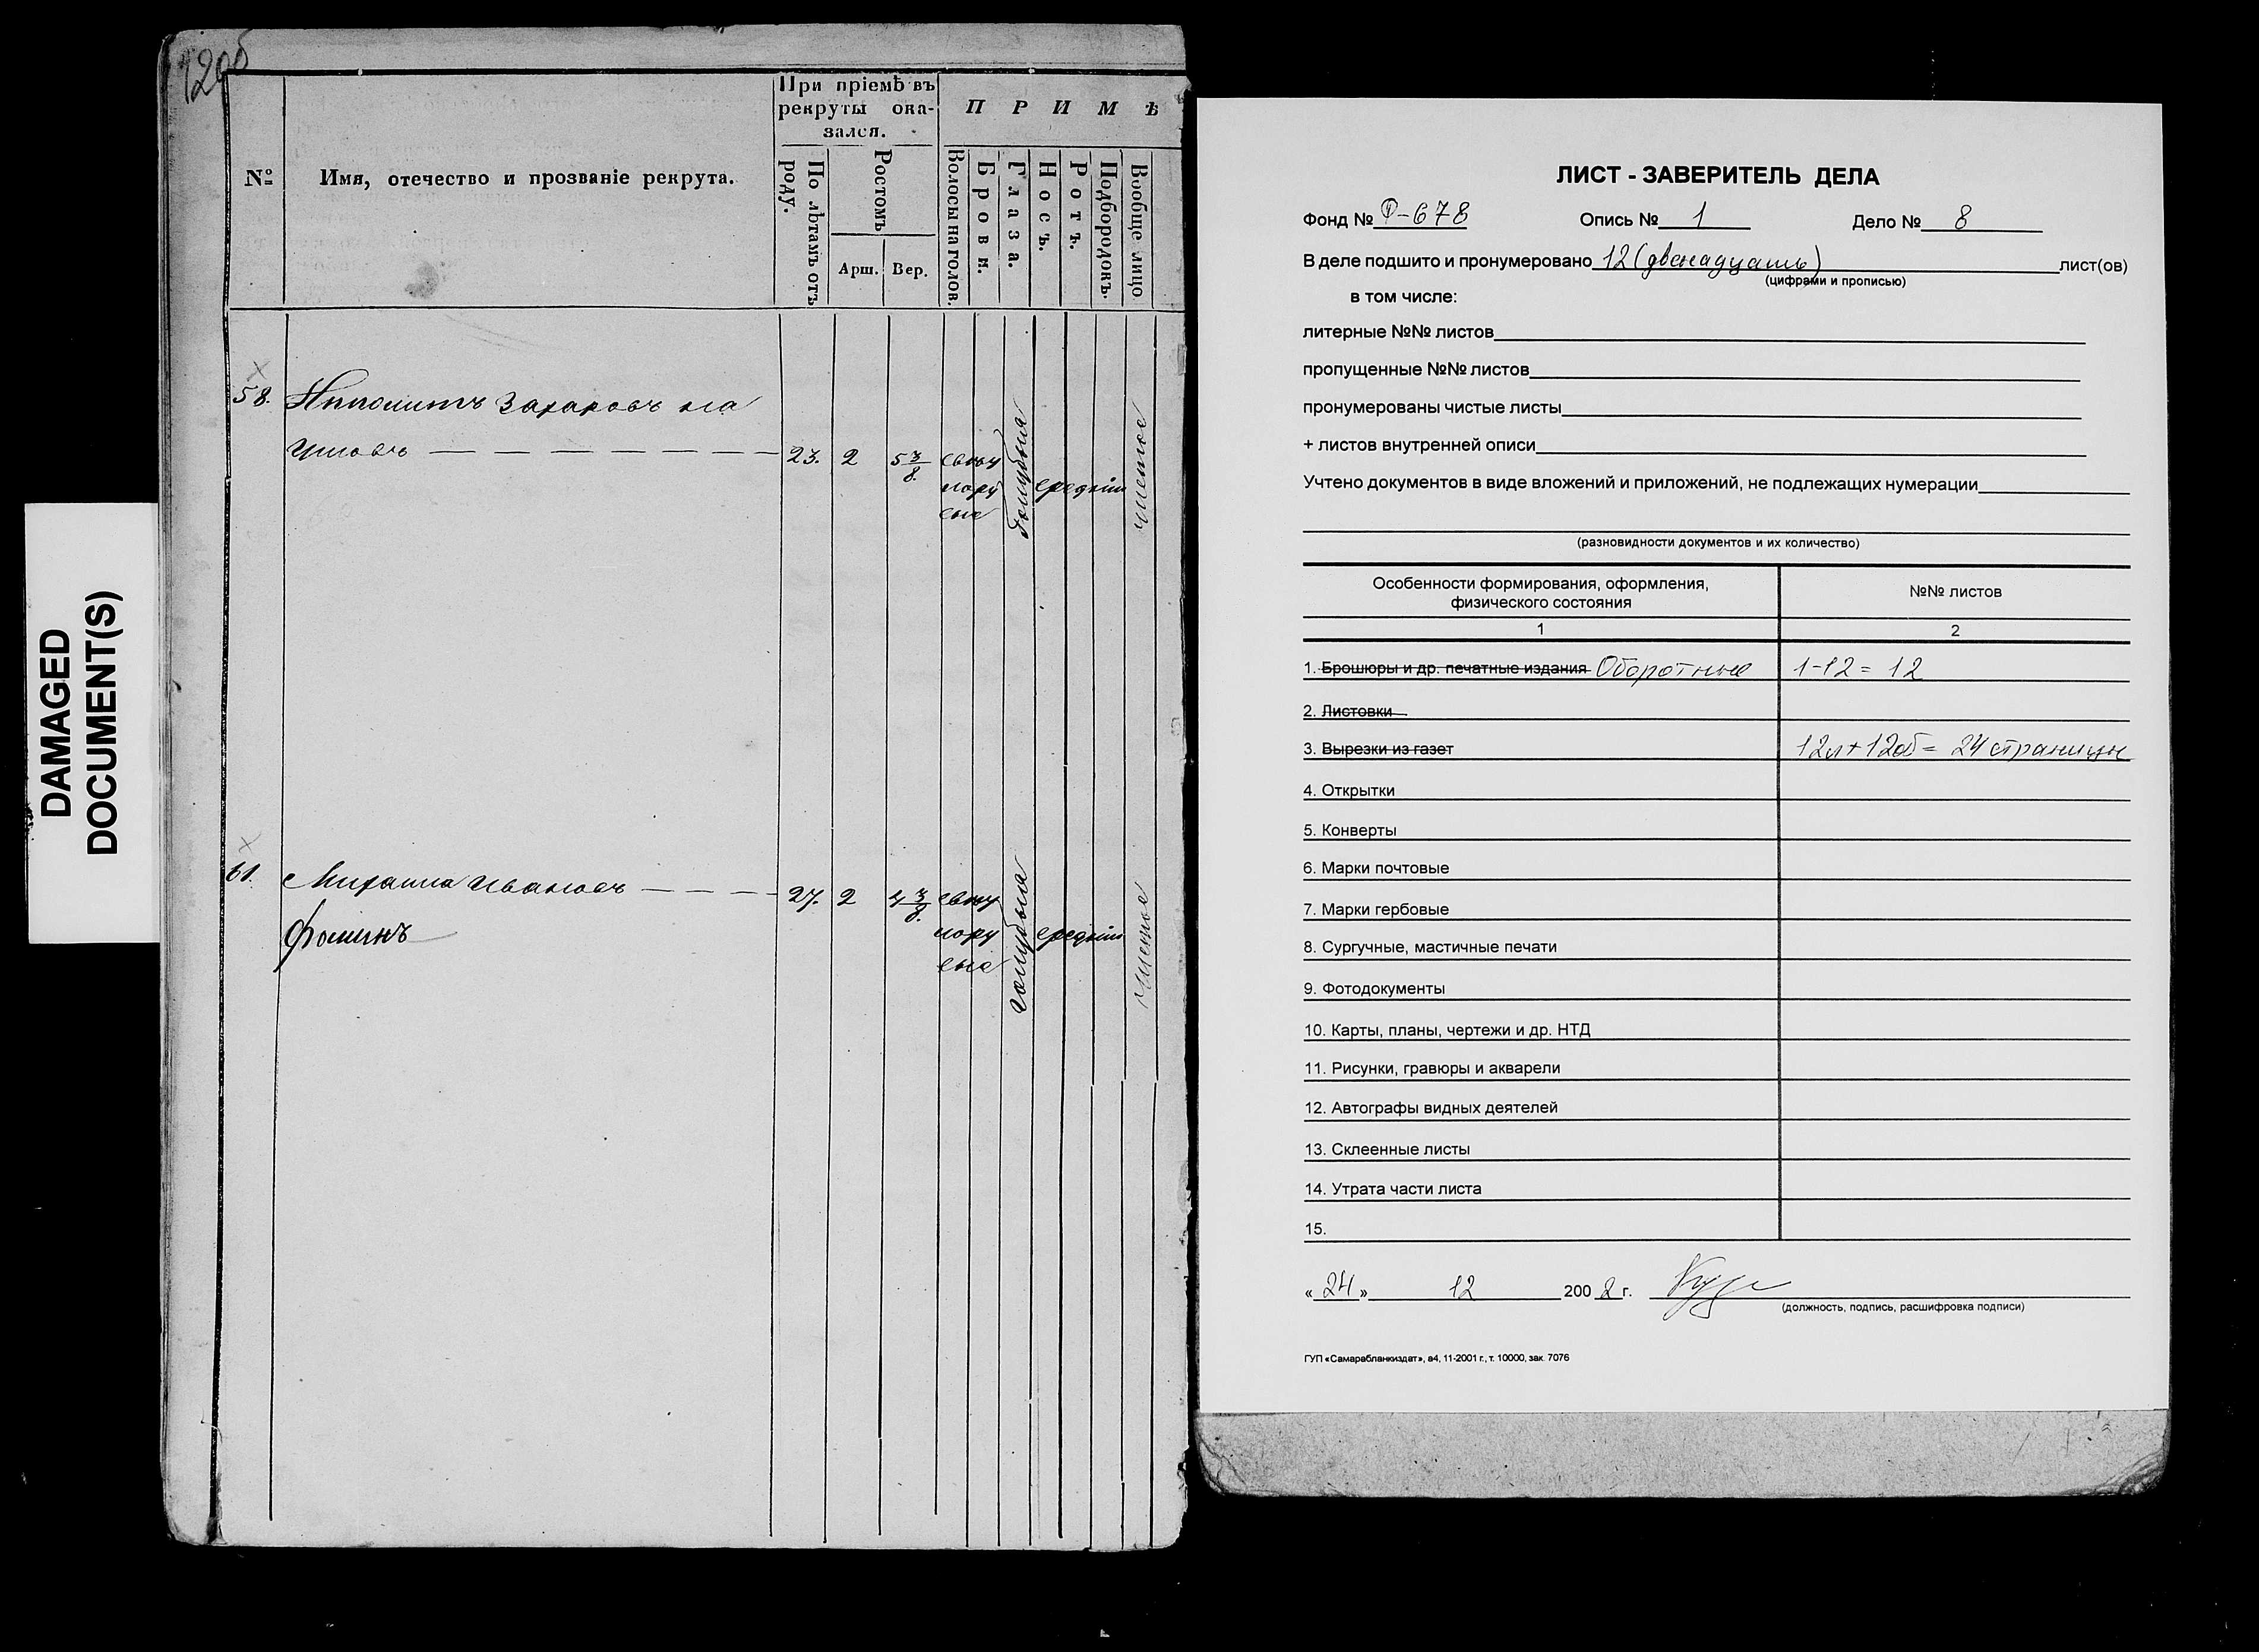 DAMAGED
DOCUMENT(S)
12об
№
Имя, отечество и прозваніе рекрута.
При пріемѣ въ
рекруты ока-
зался.
По лѣтамъ отъ
роду.
Ростомъ
Арш.
Вер.
П Р И М Ѣ
Волосы на голов.
Брови.
Глаза.
Носъ.
Ротъ.
Подбородокъ.
Вообще лицо
58. Ипполитъ Захаровъ
23. 2 5 3/8
свѣтлорусые
голубыя
средніи
чистое
61. Михаила Ивановъ — — — —
27. 2 4 3/8.
Фоминъ
голубыя
средніи
чистое
ЛИСТ - ЗАВЕРИТЕЛЬ ДЕЛА
Фонд № Ф-678 Опись № 1 Дело № 8
В деле подшито и пронумеровано 12 (двенадцать) лист(ов)
(цифрами и прописью)
в том числе:
литерные №№ листов
пропущенные №№ листов
пронумерованы чистые листы
+ листов внутренней описи
Учтено документов в виде вложений и приложений, не подлежащих нумерации
(разновидности документов и их количество)
Особенности формирования, оформления,
физического состояния
№№ листов
1 2
1. Брошюры и др. печатные издания Оборотные 1-12 = 12
2. Листовки
3. Вырезки из газет 12л + 12об = 24 страницы
4. Открытки
5. Конверты
6. Марки почтовые
7. Марки гербовые
8. Сургучные, мастичные печати
9. Фотодокументы
10. Карты, планы, чертежи и др. НТД
11. Рисунки, гравюры и акварели
12. Автографы видных деятелей
13. Склеенные листы
14. Утрата части листа
15.
« 24 » 12 200 2 г.
(должность, подпись, расшифровка подписи)
ГУП «Самарабланкиздат», а4, 11-2001 г., т. 10000, зак. 7076